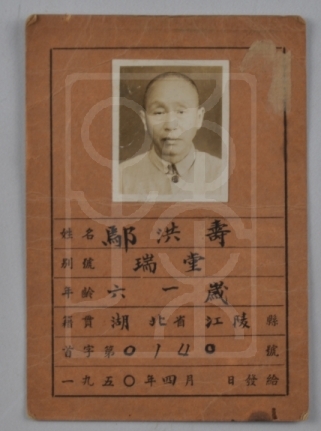 姓名 鄢洪壽
別號 瑞堂
年齡 六一歲
籍貫 湖北省江陵縣
首字第0140號
一九五〇年四月 日發給